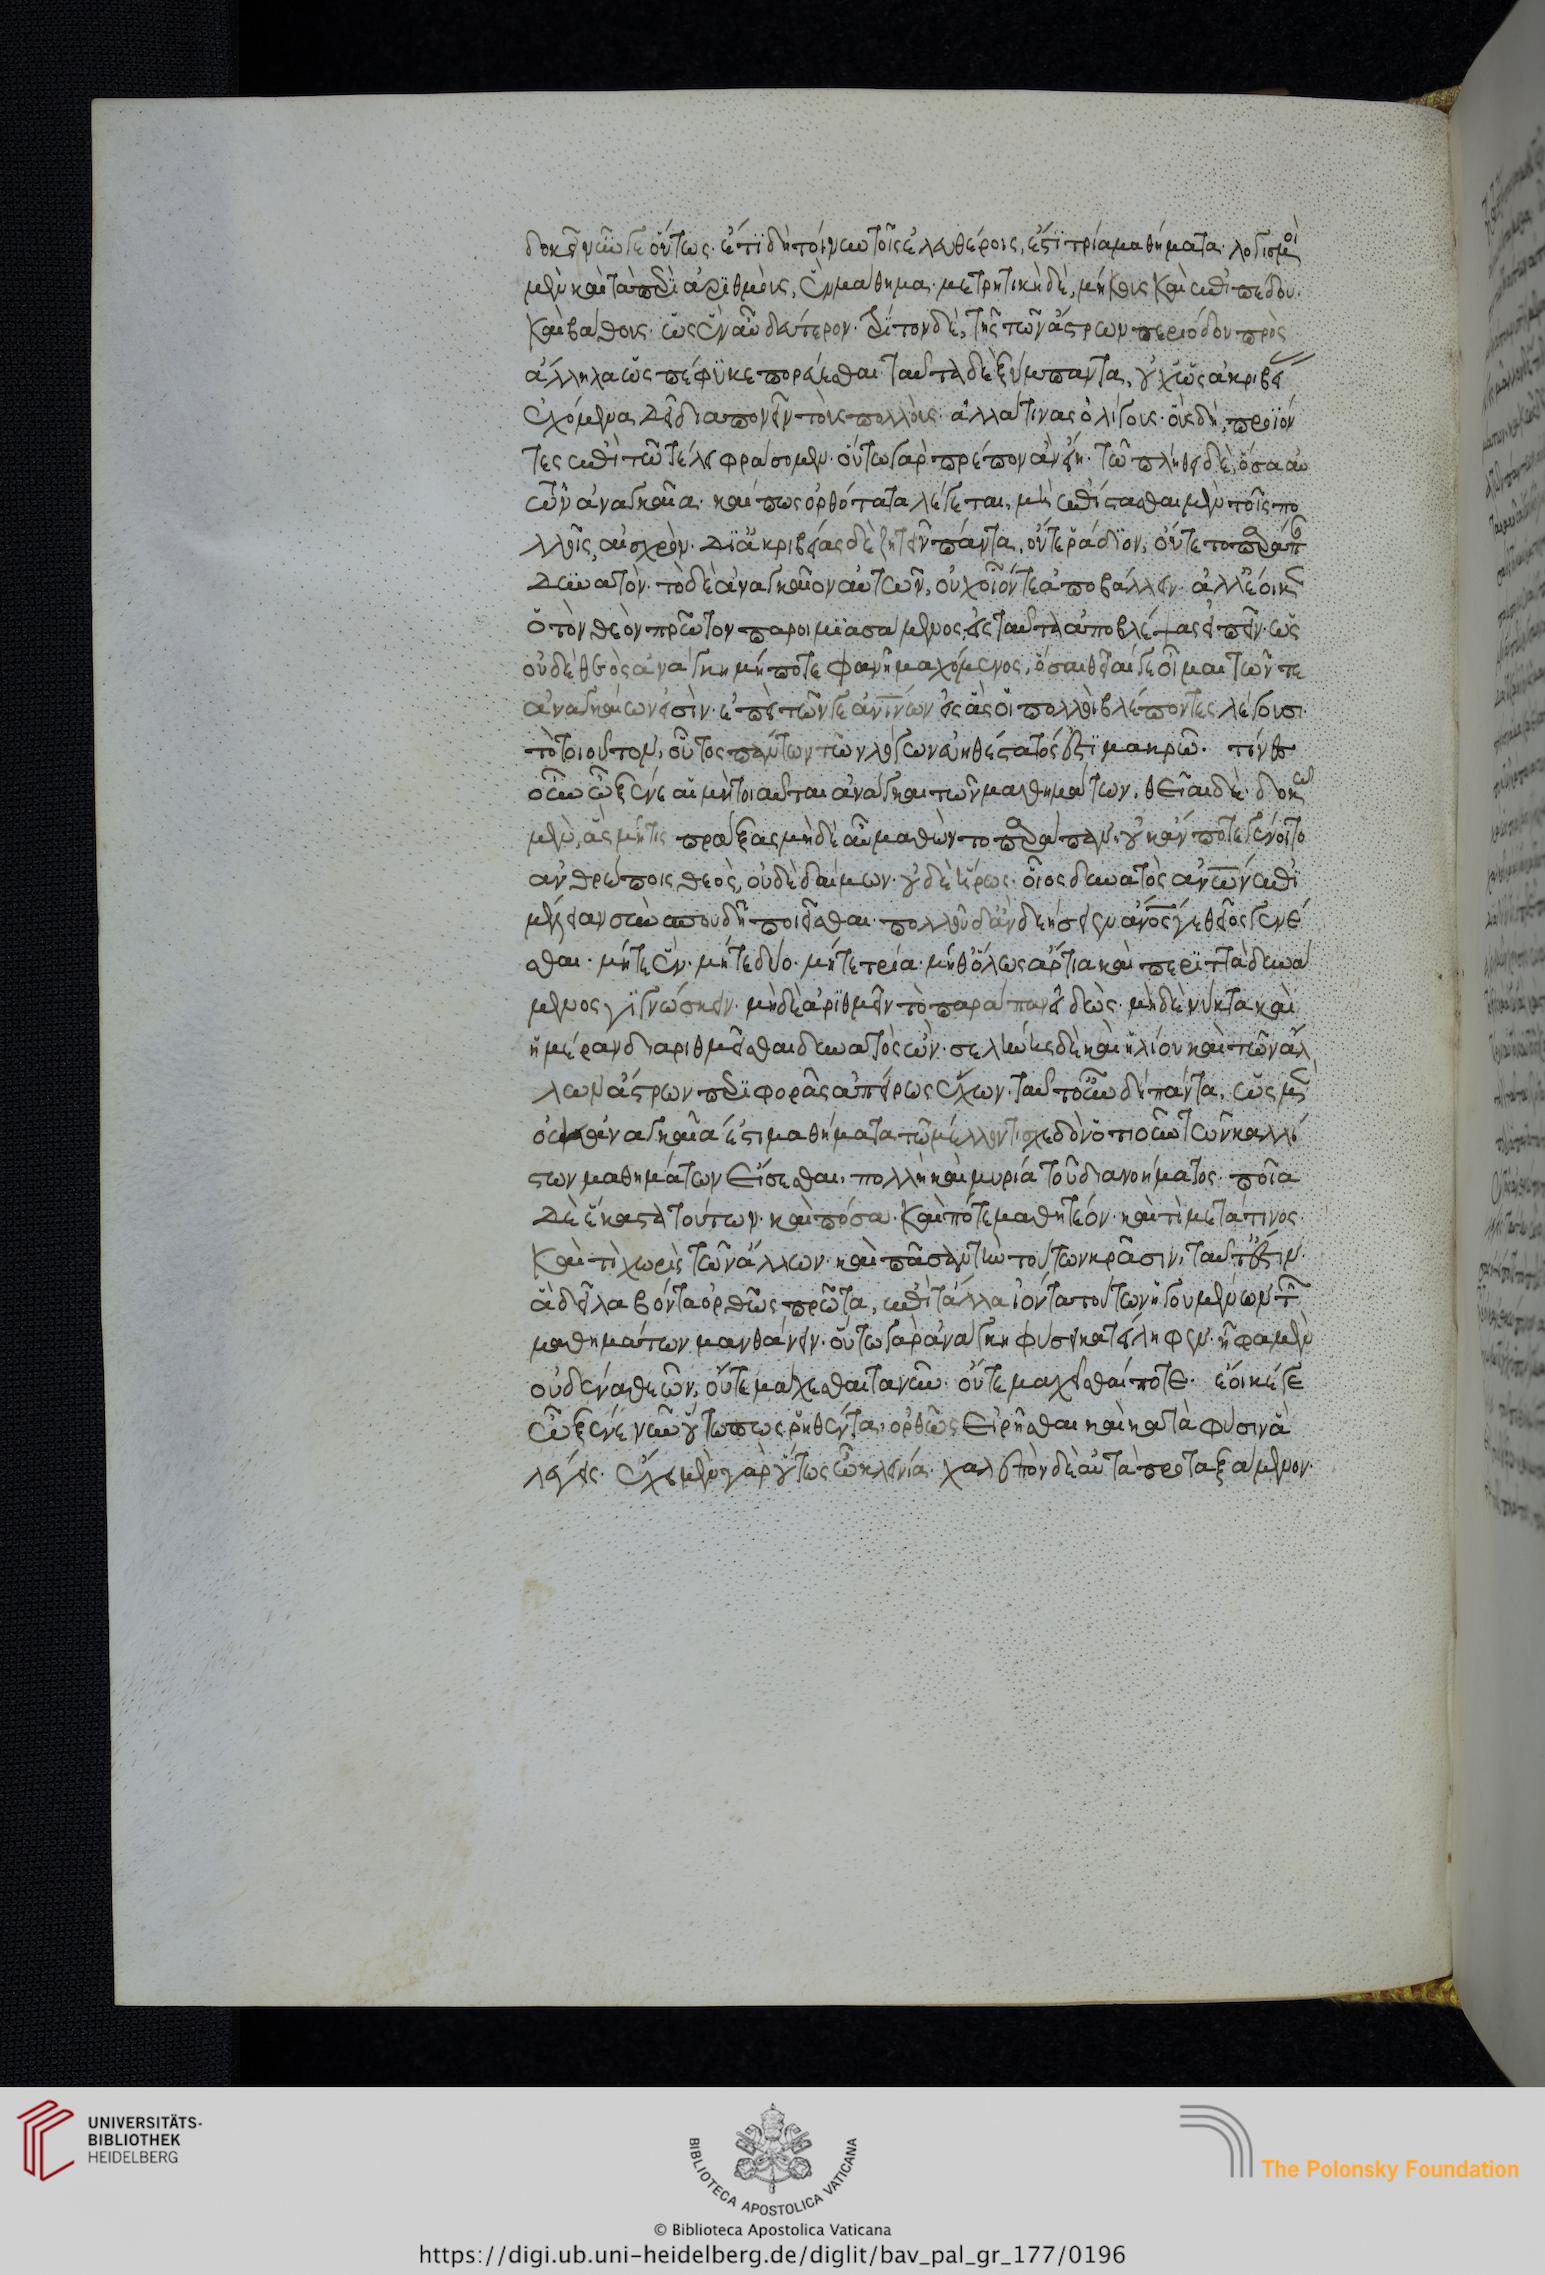 δοκεῖ νῦν γε οὕτως· ἔτι δὴ τοίνυν τοῖς ἐλευθέροις, ἔστι τρία μαθήματα· λογισμοὶ
μὲν καὶ τὰ περὶ ἀριθμοὺς, ἓν μάθημα· μετρητικὴ δὲ, μήκους καὶ ἐπιπέδου·
καὶ βάθους· ὡς ἓν αὖ δεύτερον· τρίτον δὲ, τῆς τῶν ἄστρων περιόδου πρὸς
ἄλληλα ὡς πέφυκε πορεύεσθαι· ταῦτα δὲ ξύμπαντα, οὐχ ὡς ἀκριβεί
ἐχόμενα δεῖ διαπονεῖν τοὺς πολλοὺς· ἀλλά τινας ὀλίγους· οὓς δὴ, προϊόν
τες ἐπὶ τῶ τέλει φράσομεν· οὕτω γὰρ πρέπον ἂν εἴη· τῶ πλήθει δὲ, ὅσα αὐ
τῶν ἀναγκαῖα· καί πως ὀρθότατα λέγεται, μὴ ἐπίστασθαι μὲν τοῖς πο
λλοῖς, αἰσχρὸν· δι' ἀκριβείας δὲ ζητεῖν πάντα, οὔτε ῥάδιον, οὔτε τοπαράπαν
δυνατὸν· τὸ δὲ ἀναγκαῖον αὐτῶν, οὐχ οἷόν τε ἀποβάλλειν· ἀλλ' ἔοικεν
ὁ τὸν θεὸν πρῶτον παροιμιασάμενος, εἰς ταῦτα ἀποβλέψας εἰπεῖν· ὡς
οὐδὲ θεὸς ἀνάγκη μήποτε φανῆ μαχόμενος, ὅσαι θεῖαί γε οἶμαι τῶν τε
ἀναγκαίων εἰσὶν· ἐπεὶ τῶν γε ἀνίνων εἰς ἃς οἱ πολλοὶ βλέποντες λέγουσι
τὸ τοιοῦτον, οὗτος πάντων τῶν λόγων εὐηθέστατός ἐστι μακρῶ· τίνες
οὖν ὦ ξένε αἱ μὴ τοιαῦται ἀνάγκαι τῶν μαθημάτων, θεῖαι δὲ· δοκῶ
μὲν, ἃς μή τις πράξας μηδὲ αὖ μαθὼν τοπαράπαν, οὐκ ἄν ποτε γένοιτο
ἀνθρώποις θεὸς, οὐδὲ δαίμων· οὐδὲ ἥρως· οἷος δυνατὸς ἀνων ἐπι
μέλειαν σὺν σπουδῆ ποιεῖσθαι· πολλοῦ δ' ἂν δεήσειεν ἄνος γε θεῖος γενέ
σθαι· μήτε ἓν· μήτε δύο· μήτε τρία· μήθ' ὅλως ἄρτια καὶ περιττὰ δυνά
μενος γιγνώσκειν· μηδὲ ἀριθμεῖν τὸ παράπαν εἰδὼς· μηδὲ νύκτα καὶ
ἡμέραν διαριθμεῖσθαι δυνατὸς ὢν· σελήνης δὲ καὶ ἡλίου καὶ τῶν ἄλ
λων ἄστρων περιφορᾶς ἀπείρως ἔχων· ταῦτ' οὖν δὴ πάντα, ὡς μὲν
οὐκ ἀναγκαῖά ἐστι μαθήματα τῶ μέλλοντι σχεδὸν ὁτιοῦν τῶν καλλί
στων μαθημάτων εἴσεσθαι, πολλὴ καὶ μωρία τοῦ διανοήματος· ποῖα
δὲ ἕκαστα τούτων· καὶ πόσα· καὶ πότε μαθητέον· καὶ τί μετά τινος·
καὶ τί χωρὶς τῶν ἄλλων· καὶ πᾶσαν τὴν τούτων κρᾶσιν, ταῦτ' ἐστιν
ἃ δεῖ λαβόντα ὀρθῶς πρῶτα, ἐπὶ τἄλλα ἰόντα τούτων ἡγουμένων τῶν
μαθημάτων μανθάνειν· οὕτω γὰρ ἀνάγκη φύσει κατείληφεν· ἧ φαμὲν
οὐδένα θεῶν, οὔτε μάχεσθαι τανῦν· οὔτε μαχεῖσθαί ποτε· ἔοικέ γε
ὦ ξένε νῦν οὕτω πως ῥηθέντα, ὀρθῶς εἰρῆσθαι καὶ κατὰ φύσιν ἃ
λέγεις· ἔχει μὲν γὰρ οὕτως ὦ κλεινία· χαλεπὸν δὲ αὐτὰ προταξάμενον·
UNIVERSITÄTS-
BIBLIOTHEK
HEIDELBERG
BIBLIOTECA APOSTOLICA VATICANA
The Polonsky Foundation
© Biblioteca Apostolica Vaticana
https://digi.ub.uni-heidelberg.de/diglit/bav_pal_gr_177/0196